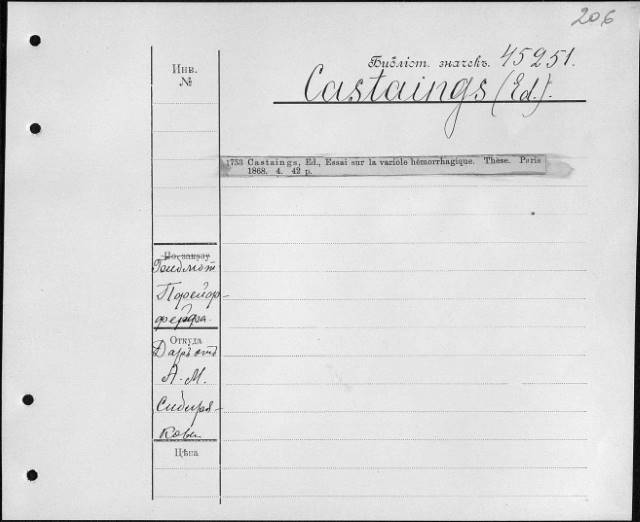 206
Библіот. значекъ. 45251.
Инв.
№
Castaings (Ed.).
1753 Castaings, Ed., Essai sur la variole hémorrhagique. Thèse. Paris
1868. 4. 42 p.
По заказу
Библіот
Порейор-
Откуда
Даръ отъ
А. М.
Сибиря-
кова
Цѣна